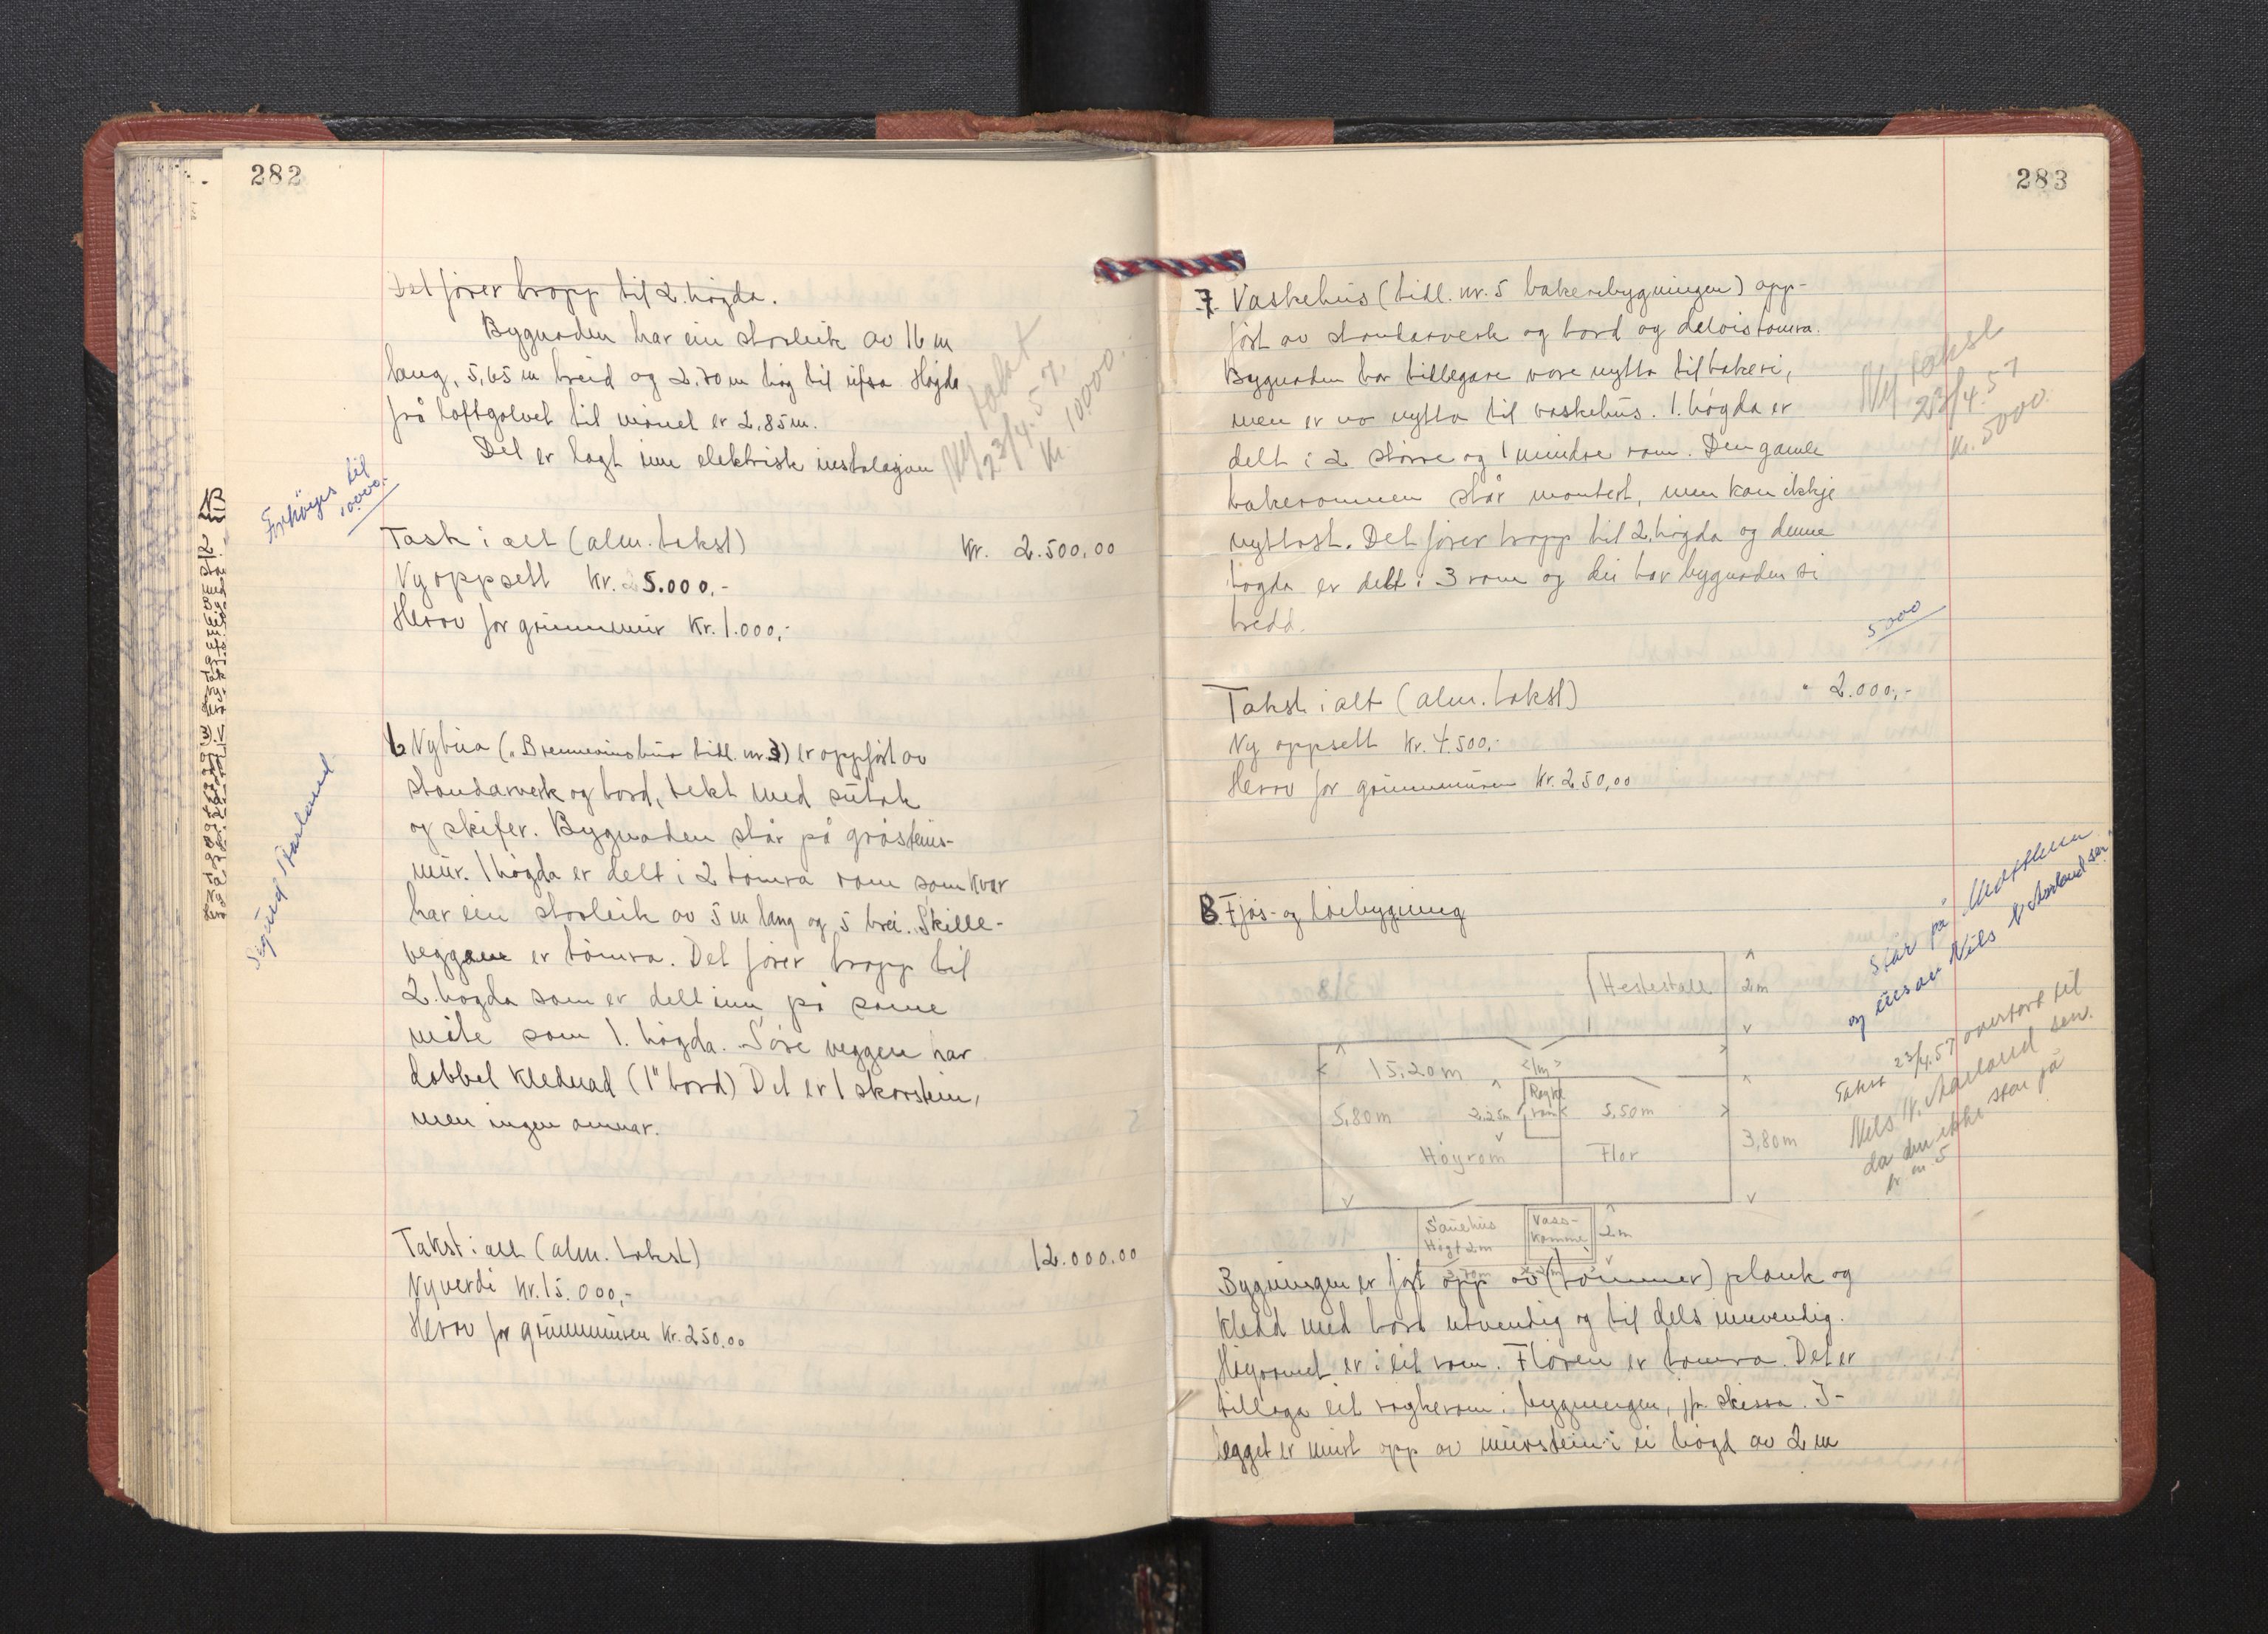 282
Det fører tropp til 2. høgda.
Bygnaden har ein storleik av 16 m
lang, 5,65 m breid og 2,70 m høg til ufsa. Høgda
frå loftgolvet til mønet er 2,85 m.
Det er lagt inn elektrisk instalasjon
Ny takst
23/4.57.
Kr. 10000.
Forhøyes til
10.000.-
Takst i alt (alm. takst) Kr. 2.500,00
Ny oppsett Kr. 5.000,-
Herav for grunnmur Kr. 1.000,-
Sigurd Aarland
6 Nybua ("Brennerinsbua tidl. nr. 3) er oppført av
standarverk og bord, tekt med sutak
og skifer. Bygnaden står på gråsteins-
mur. 1 høgda er delt i 2 tømra rom som kvar
har ein storleik av 5 m lang og 5 brei. Skille-
veggene er tømra. Det fører tropp til
2. høgda som er delt inn på same
måte som 1. høgda. Søre veggen har
dobbel klednad (1" bord) Det er 1 skorstein,
men ingen omnar.
Takst i alt (alm. takst) 12.000.00
Nyverdi Kr. 15.000,-
Herav for grunnmuren Kr. 250.00
283
7. Vaskehus (tidl. nr. 5 bakeribygningen) opp-
ført av standarverk og bord og delvis tømra.
Bygnaden har tidlegare vore nytta til bakeri,
men er no nytta til vaskehus. 1. høgda er
delt i 2 større og 1 mindre rom. Den gamle
bakeromnen står montert, men kan ikkje
nyttast. Det fører tropp til 2. høgda og denne
høgda er delt i 3 rom og dei har bygnaden si
bredd.
Ny takst
23/4.57
Kr. 5000.
5000
Takst i alt (alm. takst) " 2.000,-
Ny oppsett Kr. 4.500,-
Herav for grunnmuren Kr. 250,00
8. Fjøs- og løebygning
står på
og eies av Nils N Aarland sen.
Takst 23/4.57 overført til
Nils N. Aarland sen.
da den ikkje står på
br. nr. 5
Hestestall 2 m
15,20 m <1m>
Røykt
rom
2,25m 5,50 m
5,80 m
3,80 m
Høyrom Flor
Sauehus
Høgt 2 m
Vass-
komme
2 m
3,70m
Bygningen er ført opp av (tømmer) plank og
kledd med bord utvendig og til dels innvendig.
Høyromet er i eit rom. Floren er tømra. Det er
tillaga eit røykerom i bygningen, jfr. skissa. I-
legget er murt opp av murstein i ei høgd av 2 m